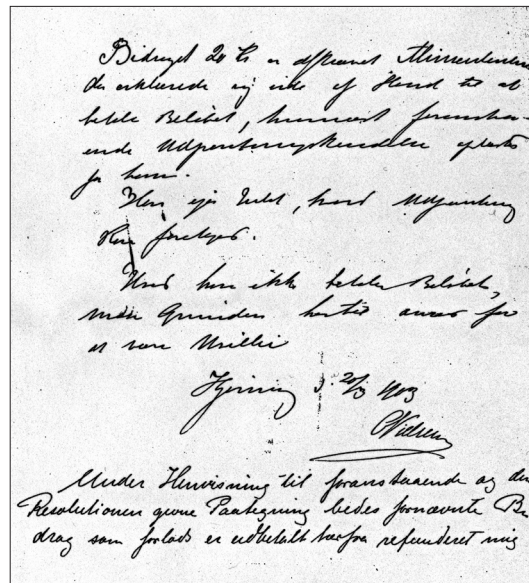 Bidraget 20 Kr er afkrævet
der erklærede sig ude af Stand til at
betale Beløbet, hvornæst foransta-
ende Udpantningskendelse oplæstes
for ham.
Han ejer Intet, hvori Udpantning
kan foretages.
Hvis han ikke betaler Beløbet,
maa Kvinden hertid anses for
at være
Hjørring d. 20/3 1903
Nielsen
Under Henvisning til foranstaaende og den
Resolutionen givne Paategning bedes fornævnte Bi
drag som forlods er udbetalt herfra refunderet mig